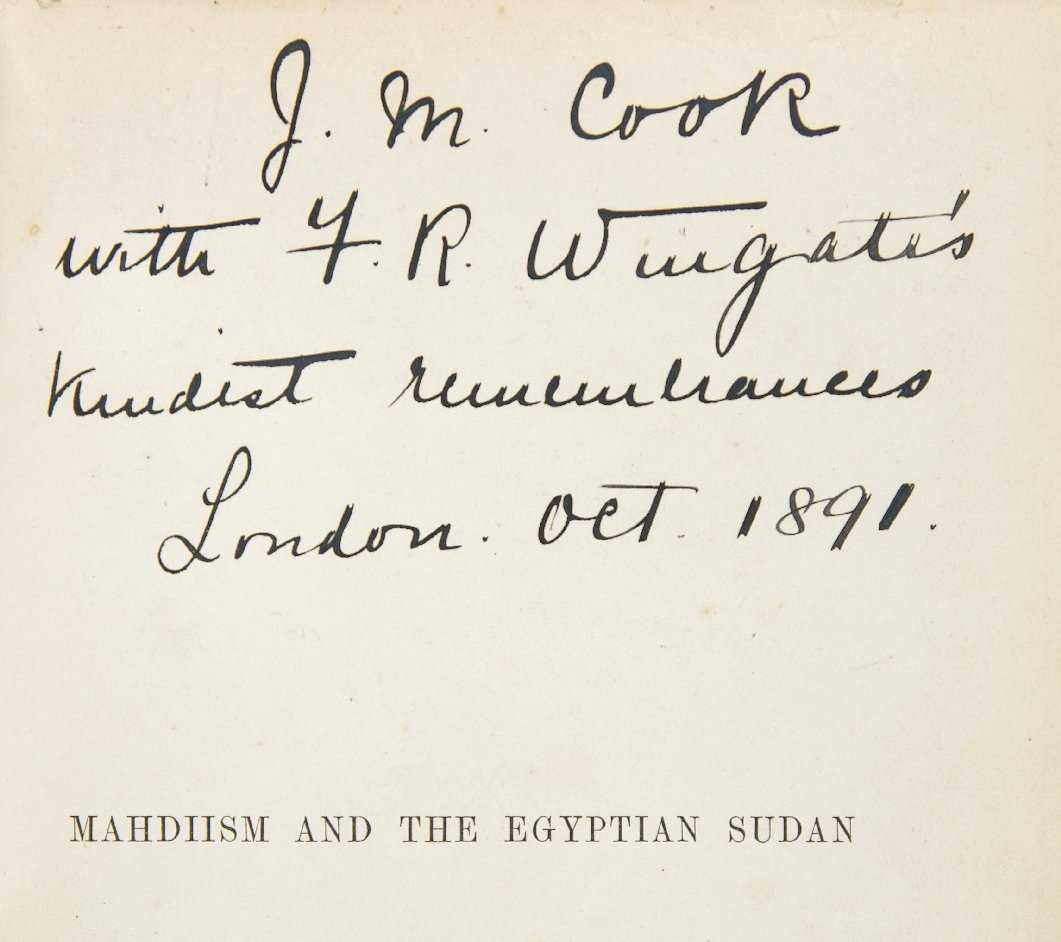 J. M. Cook
with F. R. Wingate's
kindest remembrances
London. Oct. 1891.
MAHDIISM AND THE EGYPTIAN SUDAN